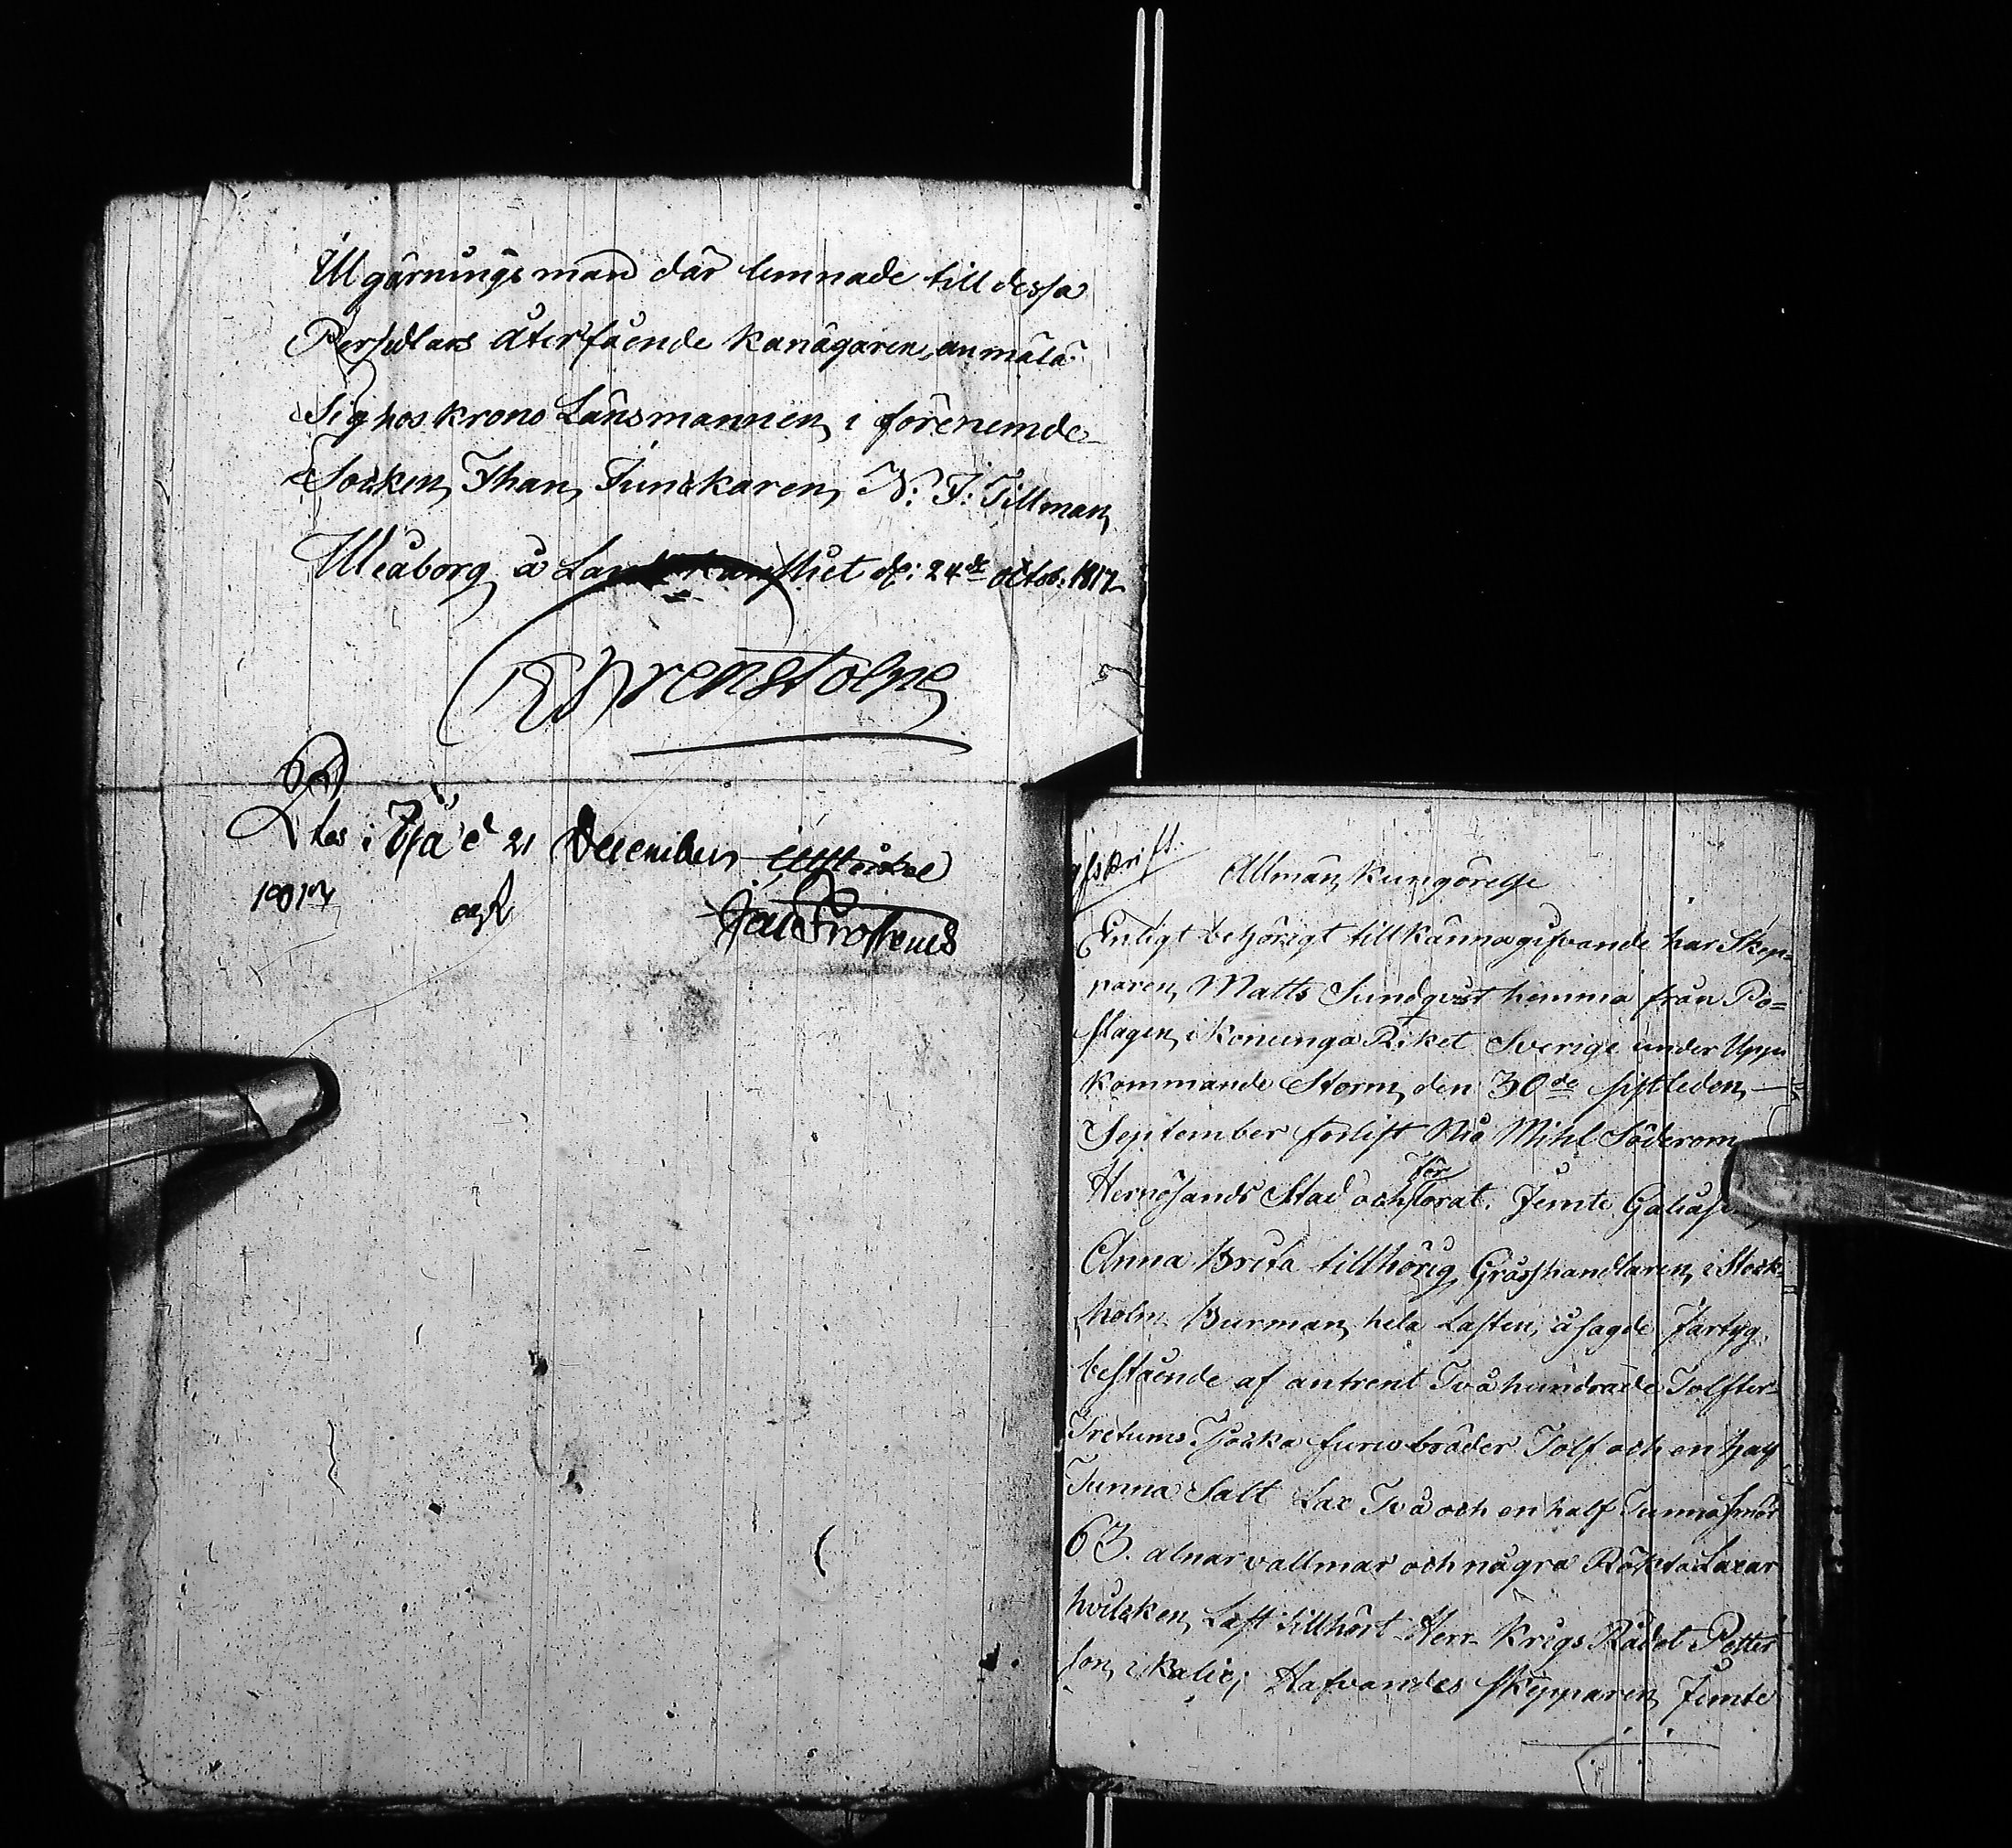 Ulgärningsman där lemnade till dessa
Persedlars återfående kan ägaren anmäla
Sig hos Krono Länsmannen i förenemde
Socken Johan Junskaren N: J: Tillman
Uleåborg å Landskansliet d: 24de Octob: 1817
Ehrenstolpe
Upläs i d 21 December
1817
Afskrift.
Allmän Kungörelse
Enligt behörigt tillkännagifvande har Skep-
paren Matts Sundqvist hemma från Ro-
slagen i Konunga Riket Sverige under Upp
kommande Storm den 30de sistleden
September forlist Nio Mihl Söderom
Hernösands Stad och förlorat. Jemte Galeasen
Anna Brita tillhörig Grosshandlaren i Stock-
holm Burman hela Lasten, å sagde Fartyg
bestående af ontrent Två hundrade Tolfter
Tretums Tjocka furu bräder Tolf och en half
Tunna Salt Lax Två och en half Tunna Smör
63. alnar vallmar och några Rökta Laxar
hvilcken Last tillhört Herr Krigs Rådet Petter
son i Kalix; Hafvandes Skepparen Jemte